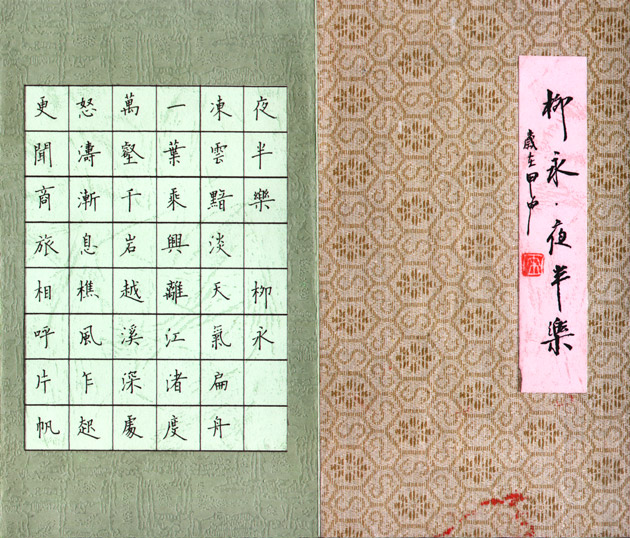 柳永·夜半樂
歲在甲申
夜半樂 柳永
凍雲黯淡天氣扁舟
一葉乘興離江渚度
萬壑千岩越溪深處
怒濤漸息樵風乍起
更聞商旅相呼片帆